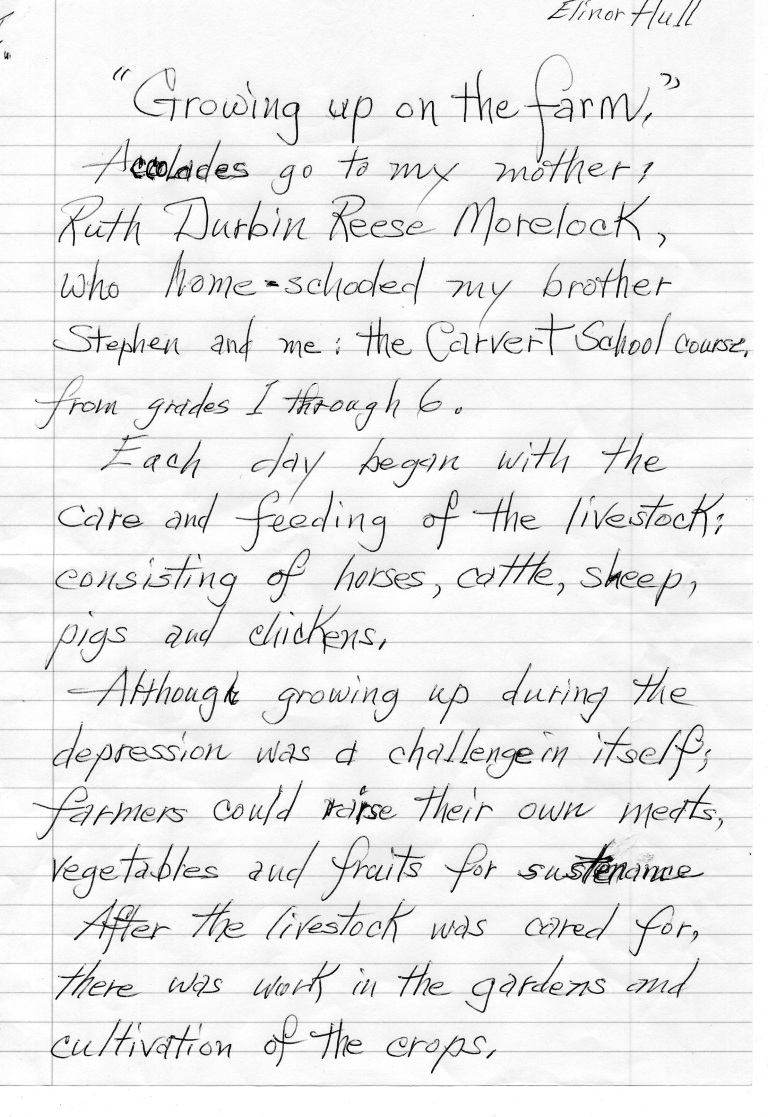 Elinor Hull
"Growing up on the farm."
Accolades go to my mother;
Ruth Durbin Reese Morelock,
who home-schooled my brother
Stephen and me: the Carvert School course,
from grades 1 through 6.
Each day began with the
care and feeding of the livestock;
consisting of horses, cattle, sheep,
pigs and chickens.
Although growing up during the
depression was a challenge in itself;
farmers could raise their own meats,
vegetables and fruits for sustenance
After the livestock was cared for,
there was work in the gardens and
cultivation of the crops.